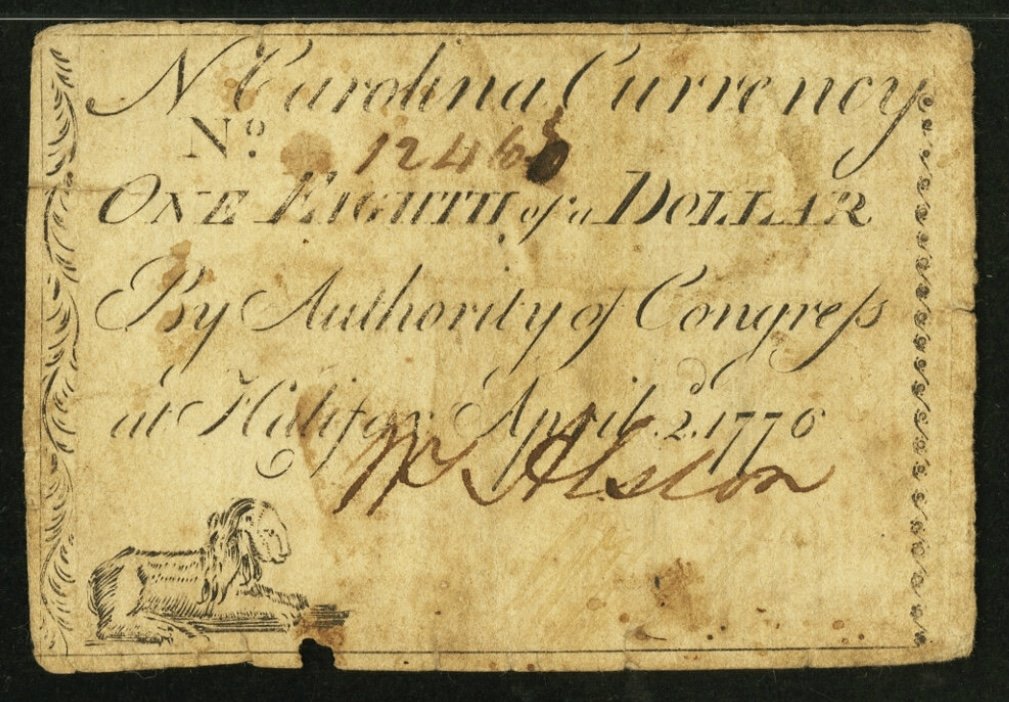 N Carolina Currency
No. 12466
ONE EIGHTH of a DOLLAR
By Authority of Congreſs
at Halifax April 2d. 1776
Wm Alston